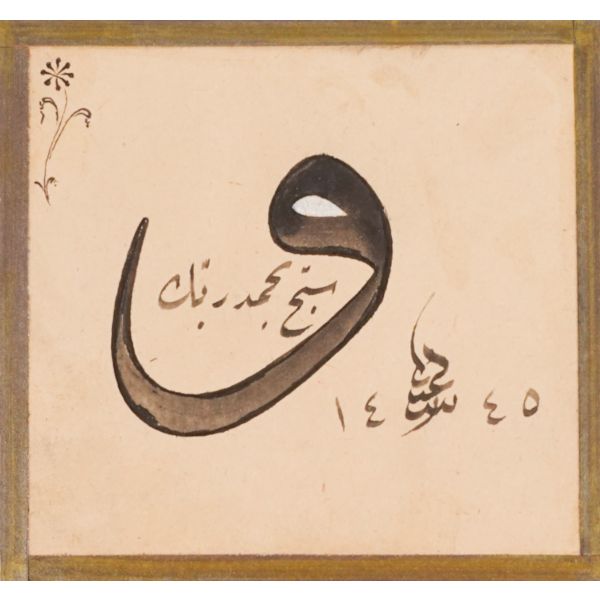 و
سبح بحمد ربك
١٤ ٤٥